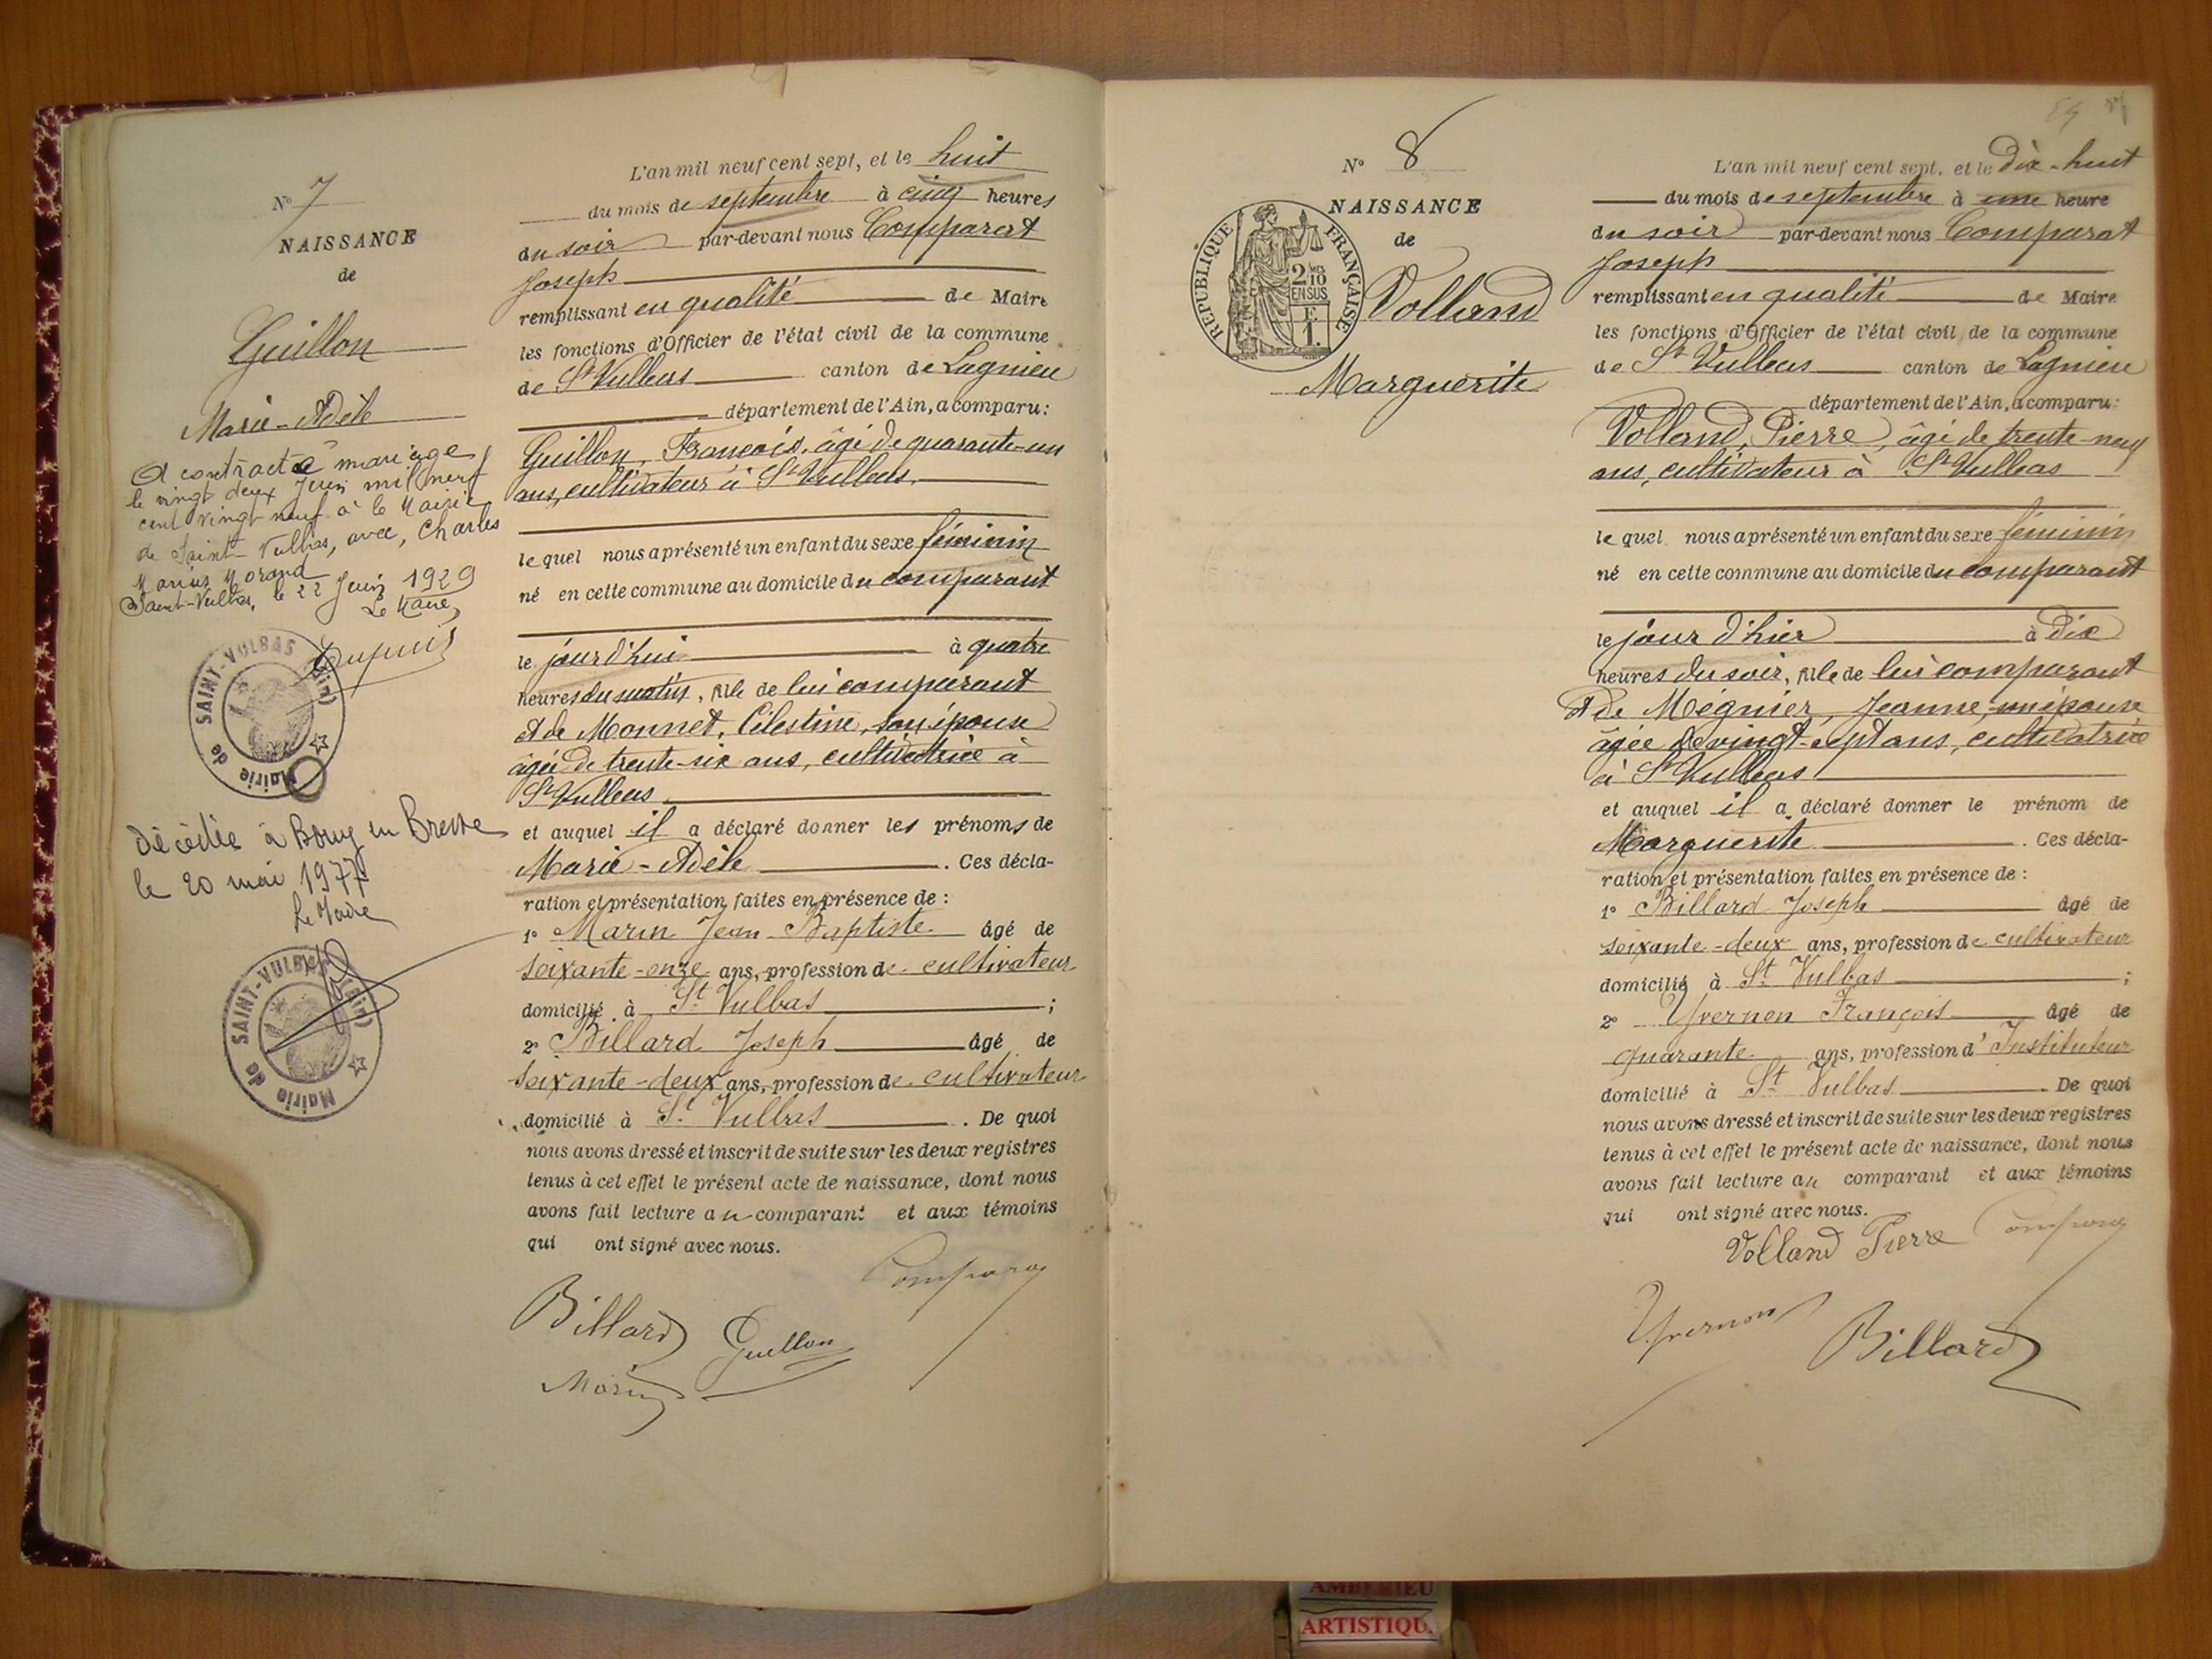 N° 7
NAISSANCE
de
Guillon
Marie-Adèle
A contracté mariage
le vingt deux Juin mil neuf
cent vingt neuf à la Mairie
de Saint-Vulbas, avec, Charles
Marius Morand
Saint-Vulbas, le 22 Juin 1929
Le Maire,
Dupuis
Mairie de SAINT-VULBAS (Ain)
Décédée à Bourg en Bresse
le 20 mai 1977
Le Maire
Mairie de SAINT-VULBAS (Ain)
L'an mil neuf cent sept, et le huit
du mois de septembre à cinq heures
du soir par-devant nous Comparat
Joseph
remplissant en qualité de Maire
les fonctions d'Officier de l'état civil de la commune
de St Vulbas canton de Lagnieu
département de l'Ain, a comparu:
Guillon, François, âgé de quarante-un
ans, cultivateur à St Vulbas,
le quel nous a présenté un enfant du sexe féminin
né en cette commune au domicile du comparant
le jour d'hui à quatre
heures du matin, fille de lui comparant
et de Monnet, Célestine, son épouse
âgée de trente-six ans, cultivatrice à
St Vulbas
et auquel il a déclaré donner les prénoms de
Marie-Adèle . Ces décla-
ration et présentation faites en présence de :
1° Marin Jean-Baptiste âgé de
soixante-onze ans, profession de cultivateur
domicilié à St Vulbas ;
2° Billard Joseph âgé de
soixante-deux ans, profession de cultivateur
domicilié à St Vulbas . De quoi
nous avons dressé et inscrit de suite sur les deux registres
tenus à cet effet le présent acte de naissance, dont nous
avons fait lecture au comparant et aux témoins
qui ont signé avec nous.
Comparat
Billard Guillon
Marin
N° 8
NAISSANCE
de
RÉPUBLIQUE FRANÇAISE
2 MES
10
EN SUS
F.
1.
Volland
Marguerite
L'an mil neuf cent sept, et le dix-huit
du mois de septembre à une heure
du soir par-devant nous Comparat
Joseph
remplissant en qualité de Maire
les fonctions d'Officier de l'état civil de la commune
de St Vulbas canton de Lagnieu
département de l'Ain, a comparu:
Volland, Pierre, âgé de trente-neuf
ans, cultivateur à St Vulbas
le quel nous a présenté un enfant du sexe féminin
né en cette commune au domicile du comparant
le jour d'hier à dix
heures du soir, fille de lui comparant
et de Mégnier, Jeanne, son épouse
âgée de vingt-sept ans, cultivatrice
à St Vulbas
et auquel il a déclaré donner le prénom de
Marguerite . Ces décla-
ration et présentation faites en présence de :
1° Billard Joseph âgé de
soixante-deux ans, profession de cultivateur
domicilié à St Vulbas ;
2° Yvernon François âgé de
quarante ans, profession d'Instituteur
domicilié à St Vulbas . De quoi
nous avons dressé et inscrit de suite sur les deux registres
tenus à cet effet le présent acte de naissance, dont nous
avons fait lecture au comparant et aux témoins
qui ont signé avec nous.
Volland Pierre Comparat
Yvernon Billard
AMBERIEU
ARTISTIQU